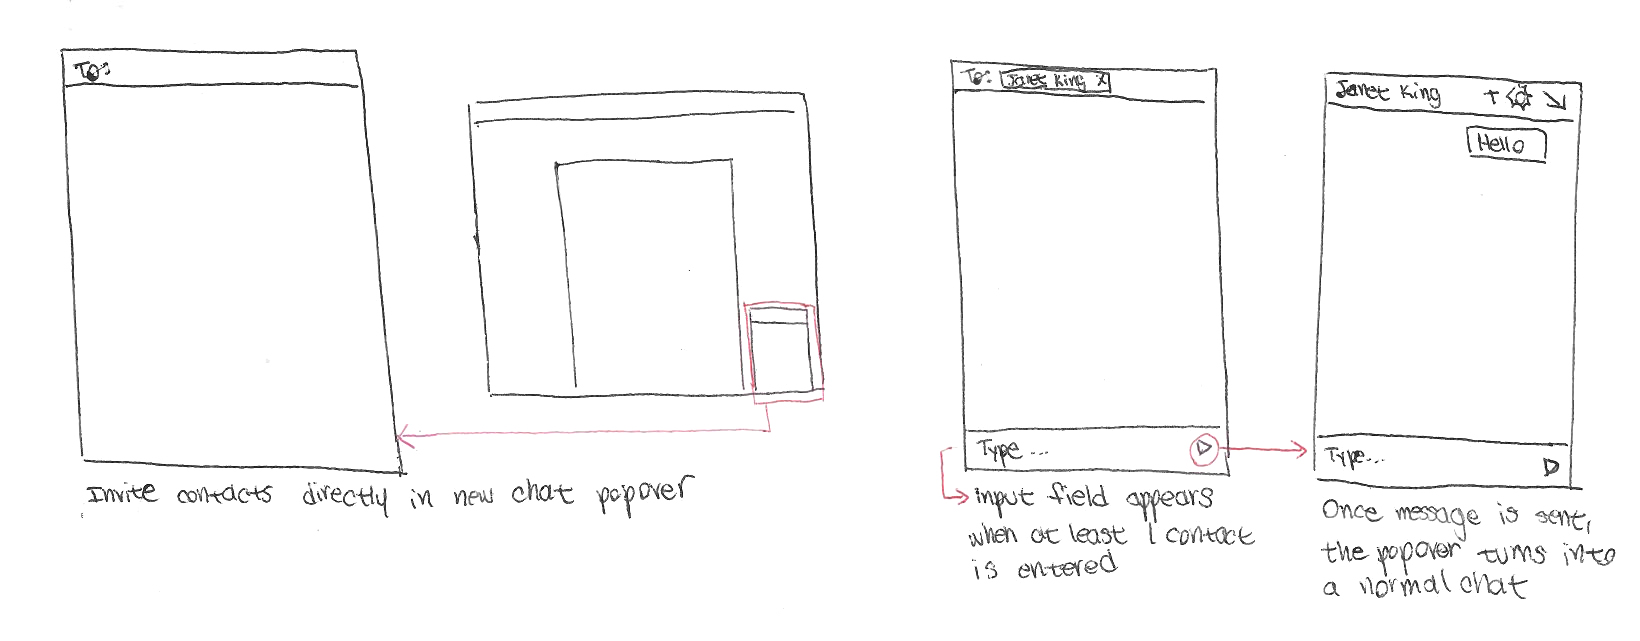 To:
Invite contacts directly in new chat popover
To: Janet King x
Type ...
input field appears
when at least 1 contact
is entered
Janet King +
Hello
Type...
Once message is sent,
the popover turns into
a normal chat